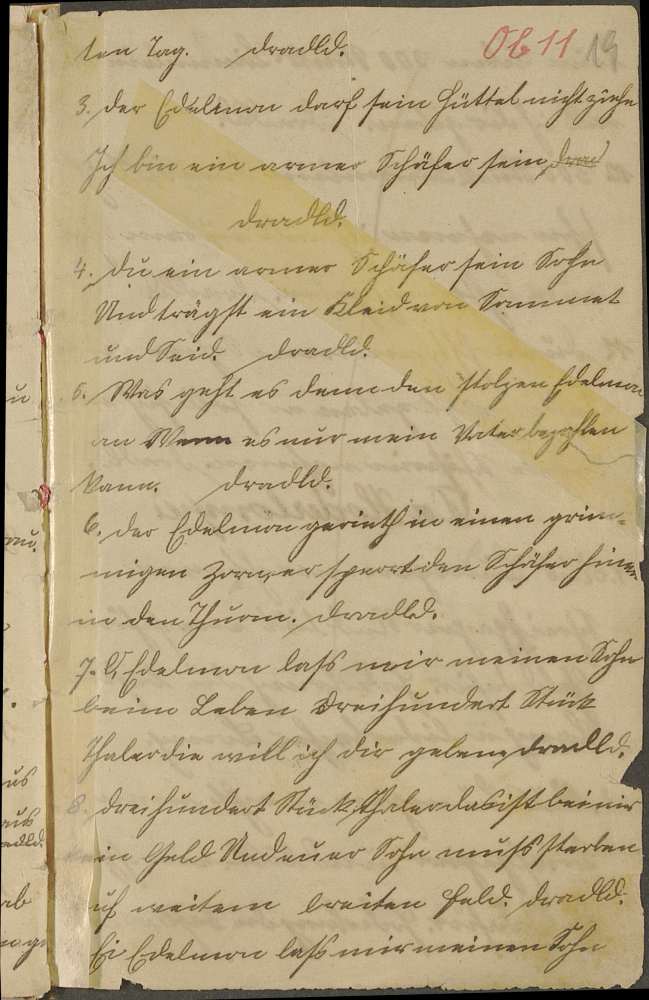 ten Tag. dradld. Ob 11 19
3. der Edelmon darf sein Hüttel nicht ziehe
Ich bin ein armer Schäfer sein drad
dradld.
4. du ein armer Schäfer sein Sohn
Und trägst ein Kleid von Sammet
und Seid. dradld.
5. Was geht es denn den stolzen Edelmon
an Wenn es nur mein Vater bezahlen
kann. dradld.
6. der Edelmon gerieth in einen grim=
migen Zorn, er sperrt den Schäfer hinein
in den Thurm. dradld.
7. O, Edelmon lass mir meinen Sohn
beim Leben dreihundert Stück
Thaler die will ich dir geben, dradld.
8. dreihundert Stück, Thaler das ist bei mir
kein Geld Und euer Sohn muss sterben
uf weitem breiten Feld. dradld.
Ei Edelmon lass mir meinen Sohn
u
aus
ab